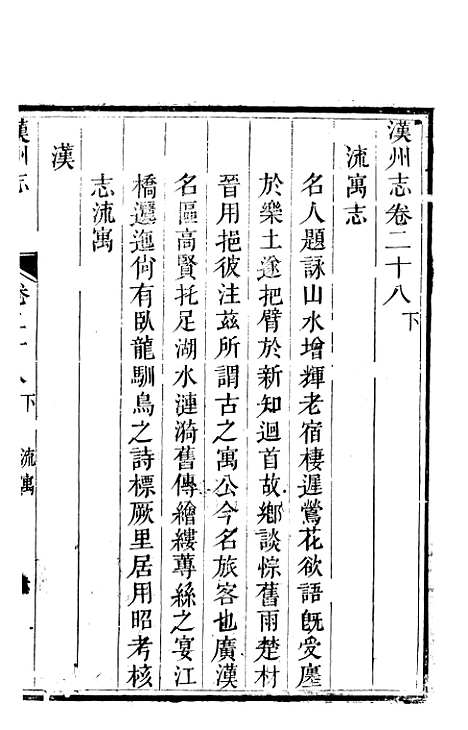 漢州志卷二十八下
流寓志
名人題詠山水增輝老宿棲遲鶯花欲語既受廛
於樂土遂把臂於新知迴首故鄉談悰舊雨楚材
晉用挹彼注茲所謂古之寓公今名旅客也廣漢
名區高賢托足湖水漣漪舊傳繪縷蓴絲之宴江
橋邐迤尙有臥龍馴鳥之詩標厥里居用昭考核
志流寓
漢
漢州志
卷二十八下 流寓